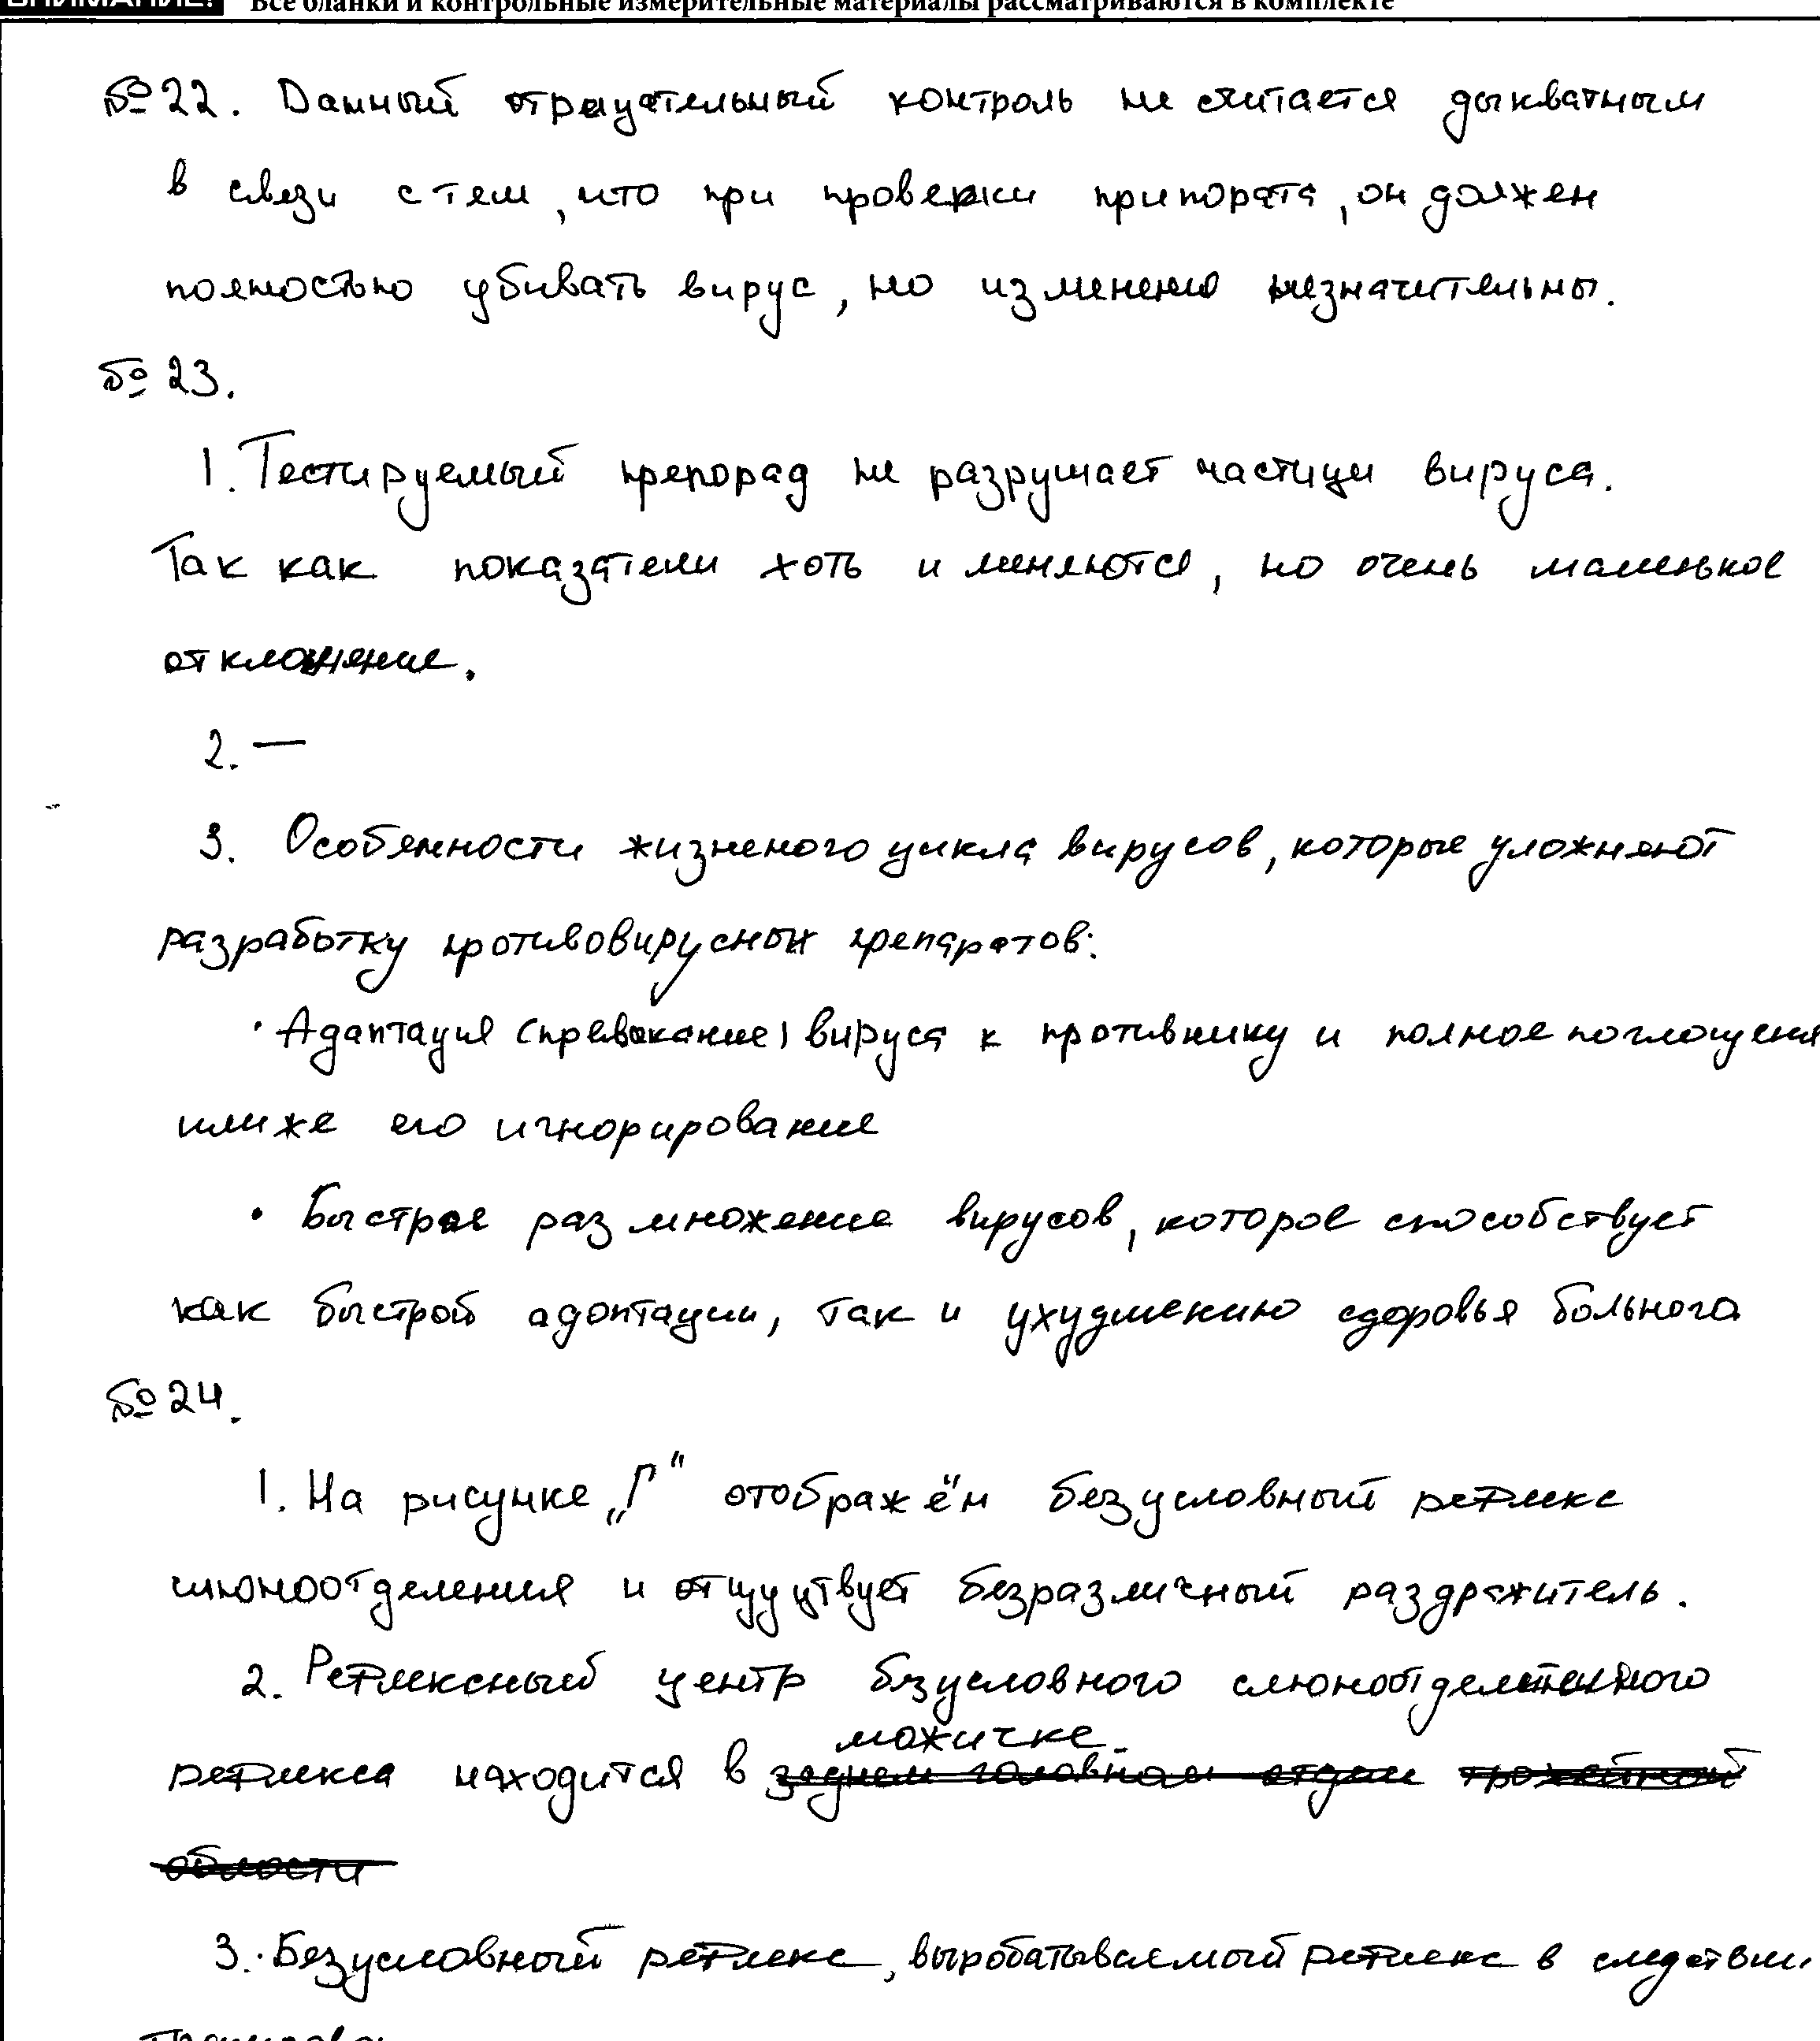 ВНИМАНИЕ! Все бланки и контрольные измерительные материалы рассматриваются в комплекте
№22. Данный отрицательный контроль не считается дыкватным
в связи с тем, что при проверки припората, он должен
полностью убивать вирус, но изменения незначительны.
№ 23.
1. Тестируемый препорад не разрушает частицы вируса.
Так как показатели хоть и меняются, но очень маленькое
отклонение.
2. —
3. Особенности жизненого цикла вирусов, которые уложняют
разработку противовирусных препаратов:
· Адаптация (превыкание) вируса к противнику и полное поглощения
или же его игнорирование
• Быстрое размножение вирусов, которое способствует
как быстрой адоптации, так и ухудшению здоровья больного
№24.
1. На рисунке „Г“ отображён безусловный рефлекс
слюноотделения и отсуутвует безразличный раздражитель.
2. Рефлексный центр безусловного слюноотделительного
рефлекса находится в мажичке.
3. · Безусловный рефлекс, выробатываемый рефлекс в следствии